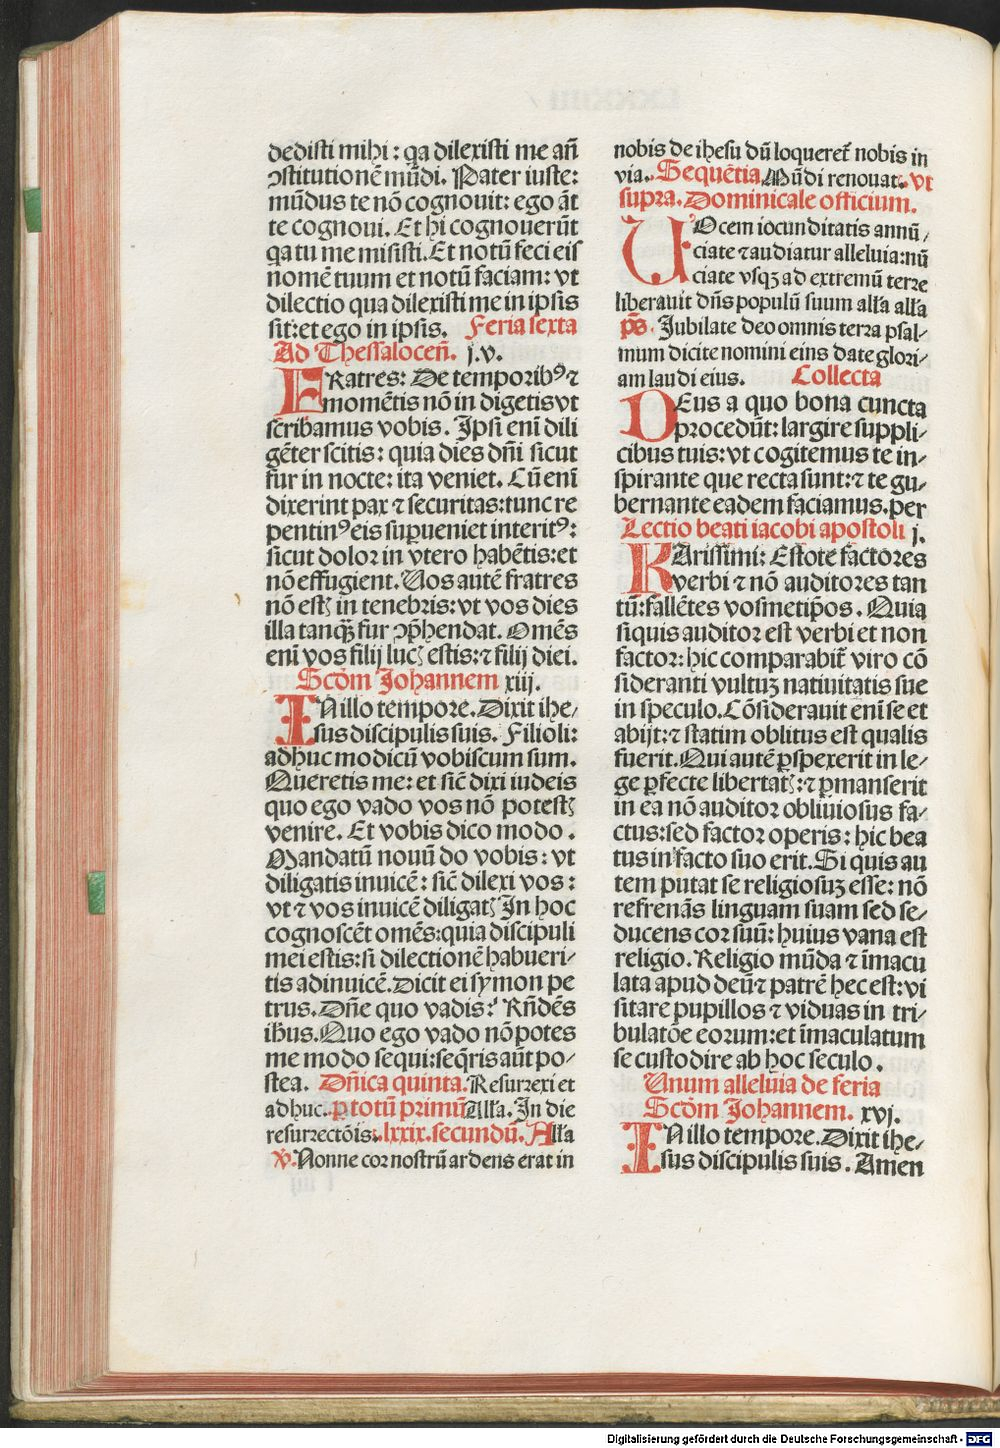 dedisti mihi : qa dilexisti me an̄
ꝯstitutionē mūdi. Pater iuste:
mūdus te nō cognouit: ego āt
te cognoui. Et hi cognouerūt
qa tu me misisti. Et notū feci eis
nomē tuum et notū faciam: vt
dilectio qua dilexisti me in ipsis
sit: et ego in ipsis. Feria sexta
Ad Thessalocen̄. j.v.
FRatres: De temporibꝰ ⁊
momētis nō indigetis vt
scribamus vobis. Ipsi eni dili
gēter scitis: quia dies dn̄i sicut
fur in nocte: ita veniet. Cū eni
dixerint pax ⁊ securitas: tunc re
pentinꝰ eis suꝑueniet interitꝰ:
sicut dolor in vtero habētis: et
nō effugient. Vos autē fratres
nō estꝭ in tenebris: vt vos dies
illa tanqꝫ fur ꝯp̄hendat. Omēs
eni vos filij lucꝭ estis: ⁊ filij diei.
Scd̄m Johannem xiij.
IN illo tempore. Dixit ihe⸗
sus discipulis suis. Filioli:
adhuc modicū vobiscum sum.
Queretis me: et sic̄ dixi iudeis
quo ego vado vos nō potestꝭ
venire. Et vobis dico modo.
Mandatū nouū do vobis: vt
diligatis inuicē: sic̄ dilexi vos:
vt ⁊ vos inuicē diligatꝭ In hoc
cognoscēt omēs: quia discipuli
mei estis: si dilectionē habueri⸗
tis adinuicē. Dicit ei symon pe
trus. Dn̄e quo vadis? Rn̄dēs
ih̄us. Quo ego vado nō potes
me modo sequi: seq̄ris aūt po⸗
stea. Dn̄ica quinta. Resurrexi et
adhuc. ꝑ totū primū Alła. In die
resurrectōis. lxxix. secundū. Alła
℣. Nonne cor nostrū ardens erat in
nobis de ihesu dū loqueret̄ nobis in
via. Sequētia Mūdi renouat. vt
supra. Dominicale officium.
VOcem iocunditatis annū⸗
ciate ⁊ audiatur alleluia: nū
ciate vsqꝫ ad extremū terre
liberauit dn̄s populū suum alła alła
p̄s. Jubilate deo omnis terra psal⸗
mum dicite nomini eius date glori⸗
am laudi eius. Collecta
DEus a quo bona cuncta
procedūt: largire suppli⸗
cibus tuis: vt cogitemus te in⸗
spirante que recta sunt: ⁊ te gu⸗
bernante eadem faciamus. per
Lectio beati iacobi apostoli j.
KArissimi: Estote factores
verbi ⁊ nō auditores tan
tū: fallētes vosmetip̄os. Quia
siquis auditor est verbi et non
factor: hic comparabit̄ viro cō
sideranti vultuꝫ natiuitatis sue
in speculo. Cōsiderauit eni se et
abijt: ⁊ statim oblitus est qualis
fuerit. Qui autē ꝑspexerit in le⸗
ge ꝑfecte libertatꝭ: ⁊ ꝑmanserit
in ea nō auditor obliuiosus fa⸗
ctus: sed factor operis: hic bea
tus in facto suo erit. Si quis au
tem putat se religiosuꝫ esse: nō
refrenās linguam suam sed se⸗
ducens cor suū: huius vana est
religio. Religio mūda ⁊ īmacu
lata apud deū ⁊ patrē hec est: vi
sitare pupillos ⁊ viduas in tri⸗
bulatōe eorum: et īmaculatum
se custodire ab hoc seculo.
Vnum alleluia de feria
Scd̄m Johannem. xvj.
IN illo tempore. Dixit ihe⸗
sus discipulis suis. Amen
Digitalisierung gefördert durch die Deutsche Forschungsgemeinschaft - DFG